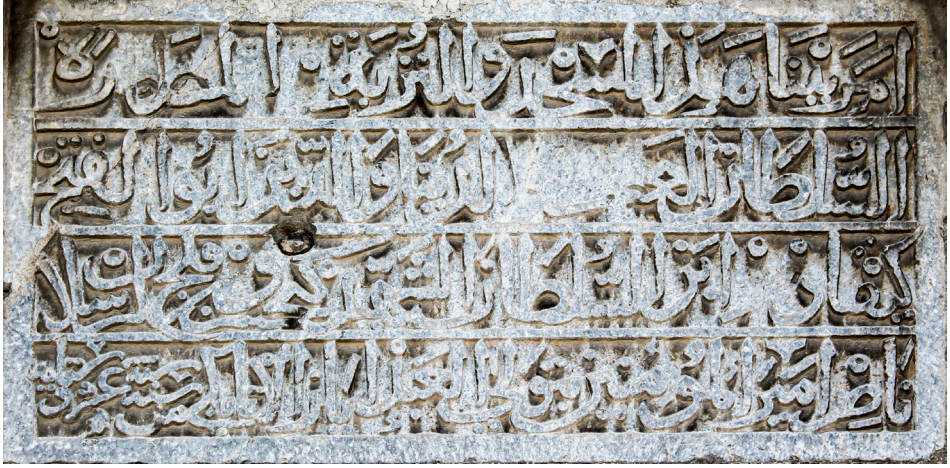 امر ببناء هذا المسجد والتربة المطهرة
السلطان الدنيا والدين ابو الفتح
كيقباد بن السلطان الشهيد كيخسرو بن قلج ارسلان
ناصر امير المؤمنين بتولي العبد اياز الاتابكي سنة ست عشر